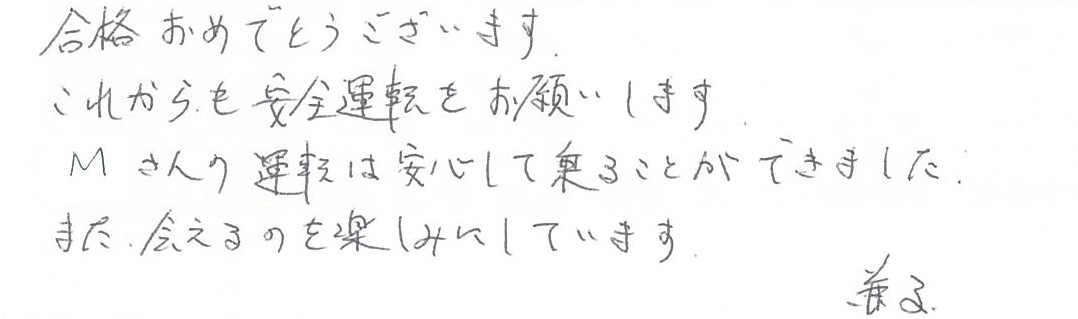 合格おめでとうございます.
これからも安全運転をお願いします.
Mさんの運転は安心して乗ることができました.
また、会えるのを楽しみにしています.